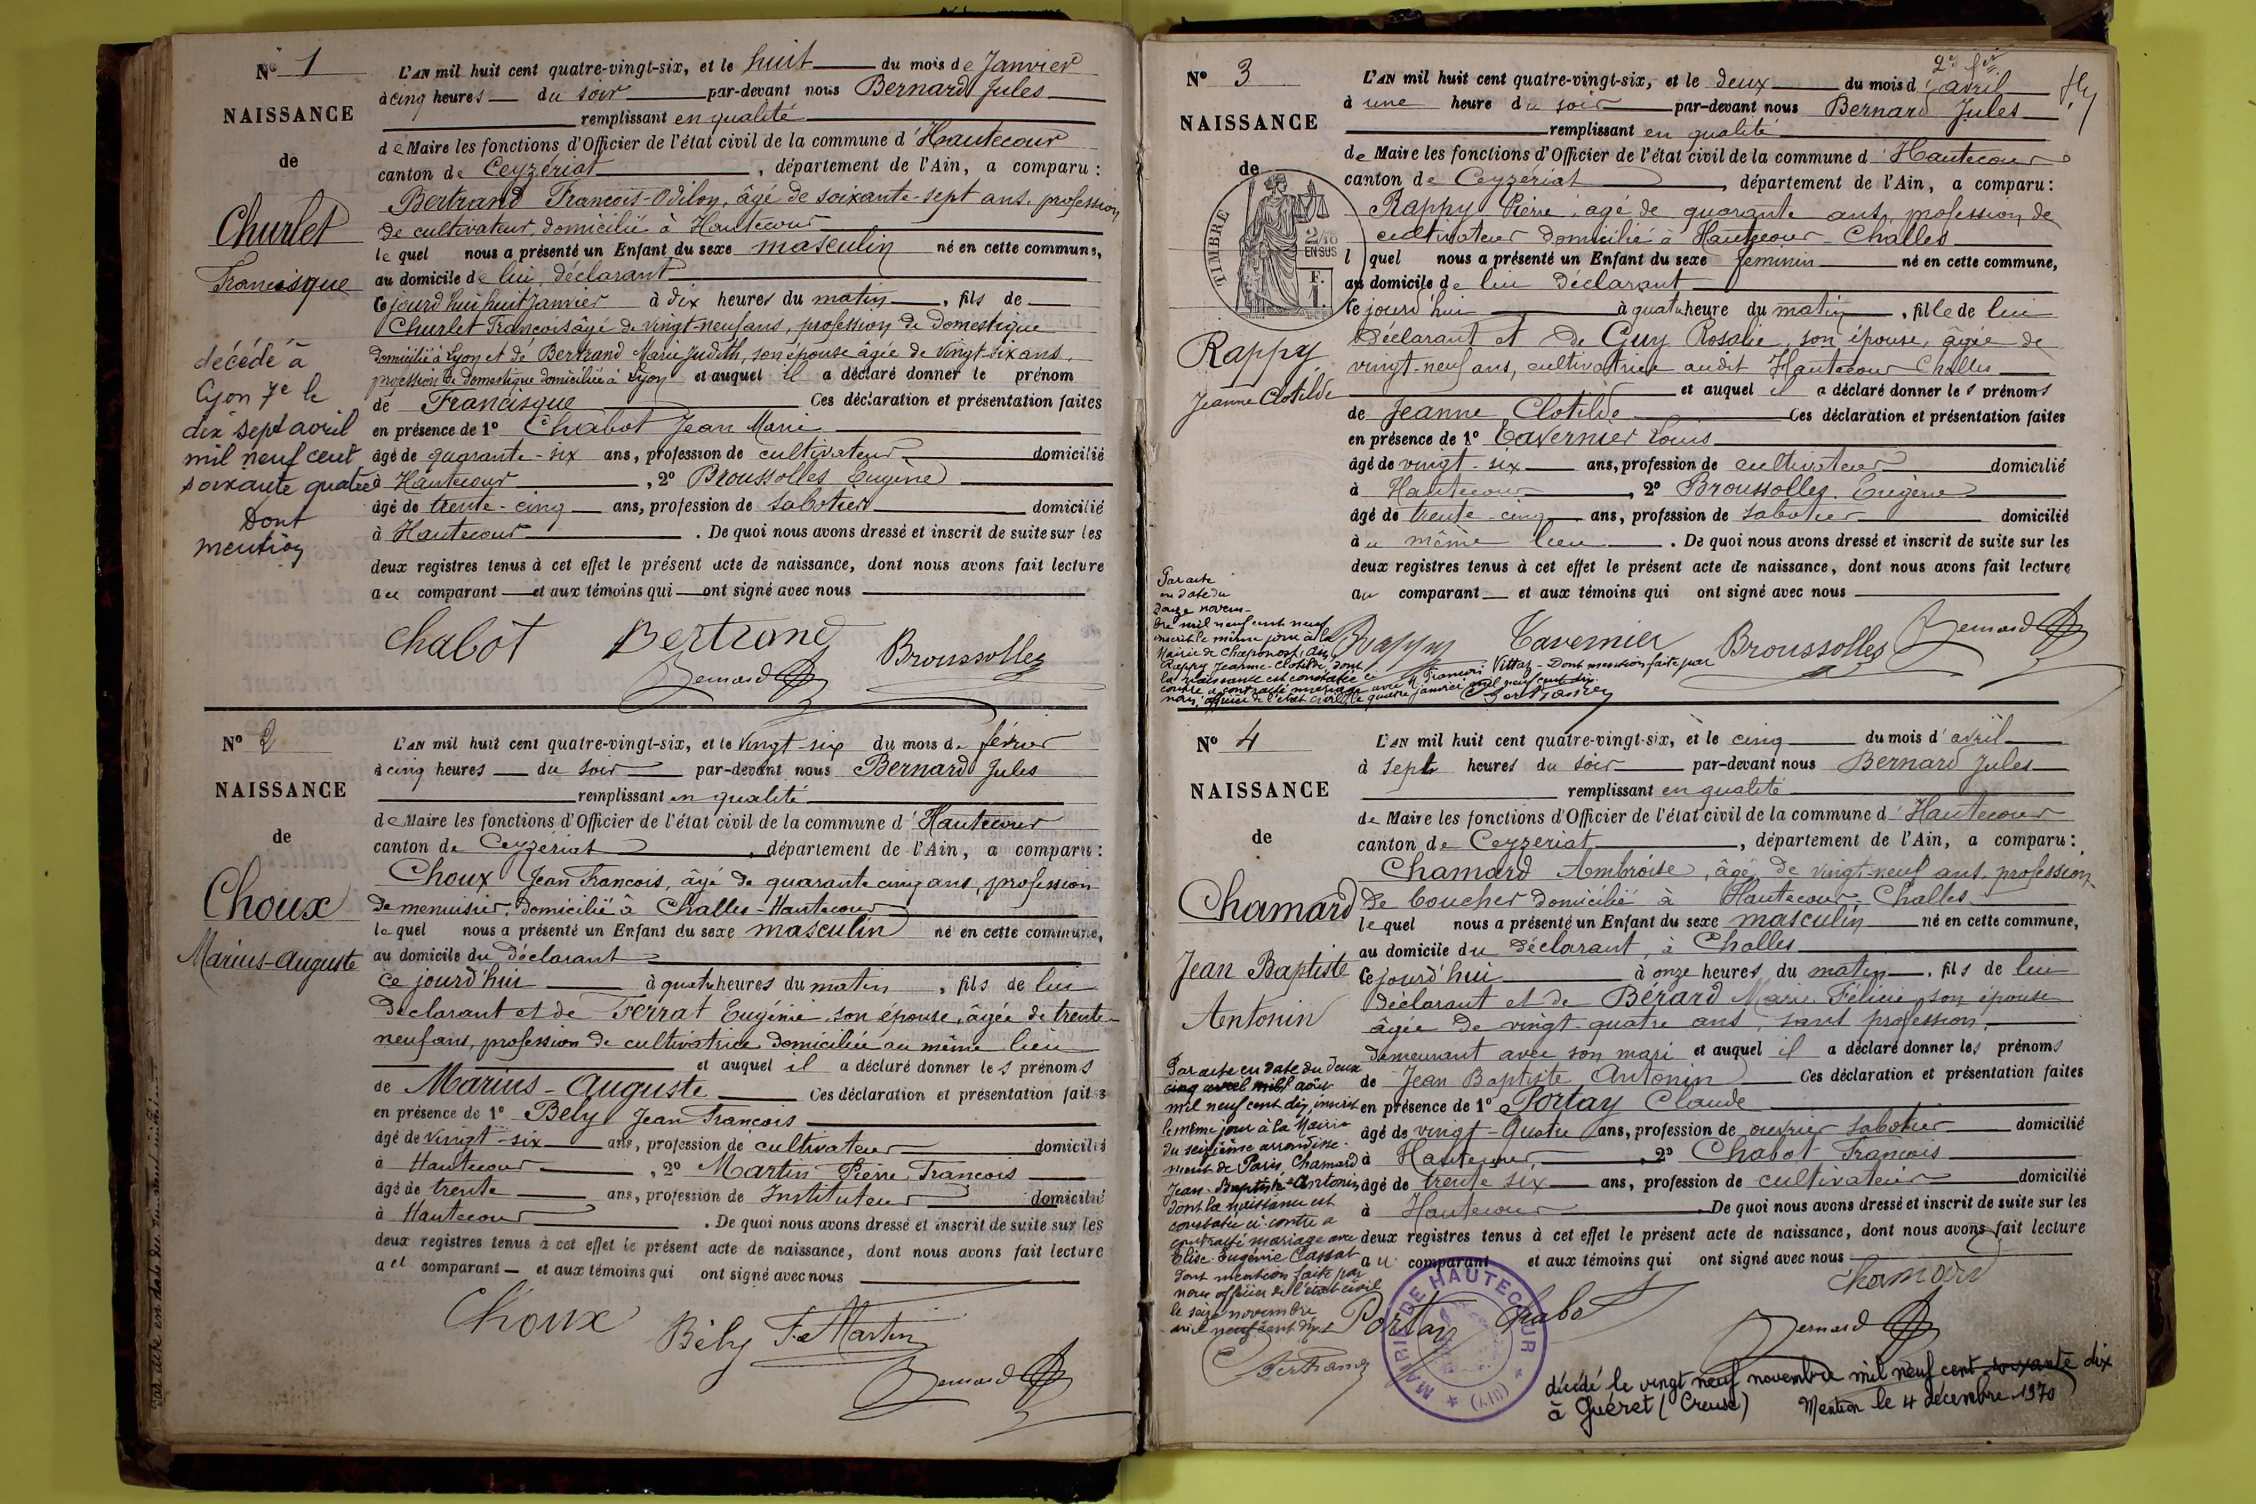 N° 1
NAISSANCE
de
Churlet
Francisque
décédé à
Lyon 7e le
dix sept avril
mil neuf cent
soixante quatre
Dont
mention
L'AN mil huit cent quatre-vingt-six, et le huit du mois de Janvier
à cinq heures du soir par-devant nous Bernard Jules
remplissant en qualité
de Maire les fonctions d'Officier de l'état civil de la commune d'Hautecour
canton de Ceyzériat, département de l'Ain, a comparu :
Bertrand François-Odilon, âgé de soixante-sept ans, profession
de cultivateur, domicilié à Hautecour
lequel nous a présenté un Enfant du sexe masculin né en cette commune,
au domicile de lui, déclarant
Ce jourd'hui huit Janvier à dix heures du matin, fils de
Churlet François âgé de vingt-neuf ans, profession de Domestique
domicilié à Lyon et de Bertrand Marie Judith, son épouse âgée de vingt-six ans,
profession de domestique domiciliée à Lyon et auquel il a déclaré donner le prénom
de Francisque Ces déclaration et présentation faites
en présence de 1° Chabot Jean Marie
âgé de quarante-six ans, profession de cultivateur domicilié
à Hautecour, 2° Broussolles Eugène
âgé de trente-cinq ans, profession de sabotier domicilié
à Hautecour. De quoi nous avons dressé et inscrit de suite sur les
deux registres tenus à cet effet le présent acte de naissance, dont nous avons fait lecture
au comparant et aux témoins qui ont signé avec nous
Chabot Bertrand Broussolles
Bernard
N° 2
NAISSANCE
de
Choux
Marius-Auguste
L'AN mil huit cent quatre-vingt-six, et le vingt-six du mois de février
à cinq heures du soir par-devant nous Bernard Jules
remplissant en qualité
de Maire les fonctions d'Officier de l'état civil de la commune d'Hautecour
canton de Ceyzériat, département de l'Ain, a comparu :
Choux Jean François, âgé de quarante cinq ans, profession
de menuisier, domicilié à Challes-Hautecour
lequel nous a présenté un Enfant du sexe masculin né en cette commune,
au domicile du déclarant
ce jourd'hui à quatre heures du matin, fils de lui
déclarant et de Ferrat Eugénie, son épouse, âgée de trente-
neuf ans, profession de cultivatrice domiciliée au même lieu
et auquel il a déclaré donner les prénoms
de Marius-Auguste Ces déclaration et présentation faites
en présence de 1° Bely Jean François
âgé de vingt-six ans, profession de cultivateur domicilié
à Hautecour, 2° Martin Pierre François
âgé de trente ans, profession de Instituteur domicilié
à Hautecour. De quoi nous avons dressé et inscrit de suite sur les
deux registres tenus à cet effet le présent acte de naissance, dont nous avons fait lecture
au comparant et aux témoins qui ont signé avec nous
Choux Bély Martin
Bernard
N° 3
NAISSANCE
de
TIMBRE
2/10
EN SUS
F.
1.
Rappy
Jeanne Clotilde
L'AN mil huit cent quatre-vingt-six, et le deux du mois d'avril
à une heure du soir par-devant nous Bernard Jules
remplissant en qualité
de Maire les fonctions d'Officier de l'état civil de la commune d'Hautecour
canton de Ceyzériat, département de l'Ain, a comparu :
Rappy Pierre, âgé de quarante ans, profession de
cultivateur domicilié à Hautecour-Challes
lquel nous a présenté un Enfant du sexe féminin né en cette commune,
au domicile de lui déclarant
Ce jourd'hui à quatre heure du matin, fille de lui
déclarant et de Guy Rosalie, son épouse, âgée de
vingt-neuf ans, cultivatrice audit Hautecour Challes
et auquel il a déclaré donner les prénoms
de Jeanne Clotilde Ces déclaration et présentation faites
en présence de 1° Tavernier Louis
âgé de vingt-six ans, profession de cultivateur domicilié
à Hautecour, 2° Broussolles Eugène
âgé de trente-cinq ans, profession de sabotier domicilié
au même lieu. De quoi nous avons dressé et inscrit de suite sur les
deux registres tenus à cet effet le présent acte de naissance, dont nous avons fait lecture
au comparant et aux témoins qui ont signé avec nous
Par acte
en date du
douze novem-
bre mil neuf cent neuf
inscrit le même jour à la
Mairie de Chaponost,
Rappy Jeanne-Clotilde, dont
la naissance est constatée ci
contre a contracté mariage avec M. François Vittaz - Dont mention faite par
nous, officier de l'état civil, le quatre janvier mil neuf cent dix.
Rappy Tavernier Broussolles Bernard
N° 4
NAISSANCE
de
Chamard
Jean Baptiste
Antonin
L'AN mil huit cent quatre-vingt-six, et le cinq du mois d'avril
à sept heures du soir par-devant nous Bernard Jules
remplissant en qualité
de Maire les fonctions d'Officier de l'état civil de la commune d'Hautecour
canton de Ceyzériat, département de l'Ain, a comparu :
Chamard Ambroise, âgé de vingt-neuf ans, profession
de boucher domicilié à Hautecour-Challes
lequel nous a présenté un Enfant du sexe masculin né en cette commune,
au domicile du déclarant, à Challes
Ce jourd'hui à onze heures du matin, fils de lui
déclarant et de Bérard Marie Félicie, son épouse
âgée de vingt-quatre ans, sans profession,
demeurant avec son mari et auquel il a déclaré donner les prénoms
de Jean Baptiste Antonin Ces déclaration et présentation faites
en présence de 1° Portay Claude
âgé de vingt-quatre ans, profession de ouvrier sabotier domicilié
à Hautecour, 2° Chabot François
âgé de trente six ans, profession de cultivateur domicilié
à Hautecour. De quoi nous avons dressé et inscrit de suite sur les
deux registres tenus à cet effet le présent acte de naissance, dont nous avons fait lecture
au comparant et aux témoins qui ont signé avec nous
Par acte en date du deux
cinq avril mil août
mil neuf cent dix, inscrit
le même jour à la Mairie
du seizième arrondisse-
ment de Paris, Chamard
Jean-Baptiste Antonin
dont la naissance est
constatée ci-contre a
contracté mariage avec
Elise Eugénie Cassat
dont mention faite par
nous officier de l'état civil
le seize novembre
mil neuf cent dix
Bertrand
Portay Chabot Chamard
Bernard
MAIRIE DE HAUTECOUR
décédé le vingt neuf novembre mil neuf cent soixante dix
à Guéret (Creuse) Mention le 4 décembre 1970